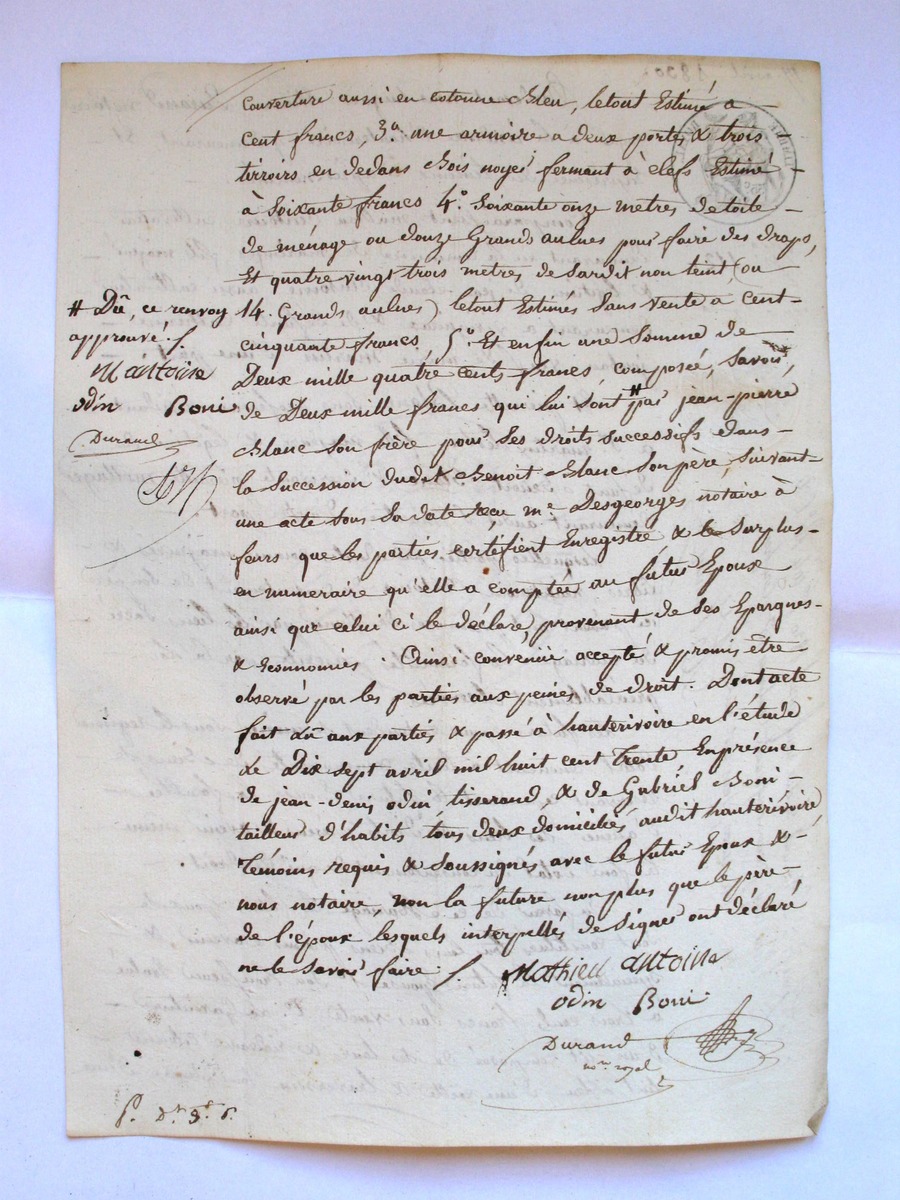 Couverture aussi en cotonne Bleu, letout Estimé a
cent francs, 3º. une armoire a deux portes & trois
tirroirs en dedans Bois noyé fermant à clefs Estimé
à Soixante francs 4º. Soixante onze metres de toile
de ménage ou douze Grands aulnes pour faire des draps,
Et quatre vingt trois metres de Sardit non teint (ou
14. Grands aulnes) letout Estimés Sans vente a cent
cinquante francs, 5º. Et enfin une Somme de
Deux mille quatre cents francs, composée, Savoir,
de Deux mille francs qui lui Sont # par jean-pierre
Blanc Son frère pour Ses droits Successifs dans
la Succession dudit Benoit Blanc Son père, Suivant
une acte Sous Sa date recu me. Desgeorges notaire à
feurs que les parties certifient Enregistré & le Surplus
en numeraire qu'elle a comptée au futur Epoux
ainsi que celui ci le déclare, provenant de Ses Epargnes
& Economies. Ainsi convenüe accepté & promis être
observé par les parties aux peines de droit. Dont acte
fait lû aux parties & passé à hauterivoire en l'étude
Le Dix Sept avril mil huit cent Trente Enprésence
de jean-denis odin tisserand, & de Gabriel Boni
tailleur d'habits tous deux domiciliés audit hauterivoire
Témoins requis & Soussignés avec le futur Epoux &
nous notaire, non la future non plus que le père
de l'époux lesquels interpellés de Signer ont déclaré
ne le Savoir faire /.
Mathieu antoine
odin Boni
Durand
nore. royal
# Dû, ce renvoy
approuvé /.
M antoine
odin Boni
Durand